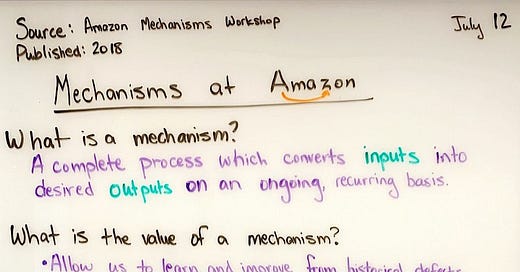 Source: Amazon Mechanisms Workshop
July 12
Published: 2018
Mechanisms at Amazon
What is a mechanism?
A complete process which converts inputs into
desired outputs on an ongoing, recurring basis.
What is the value of a mechanism?
•Allow us to learn and improve from historical defects